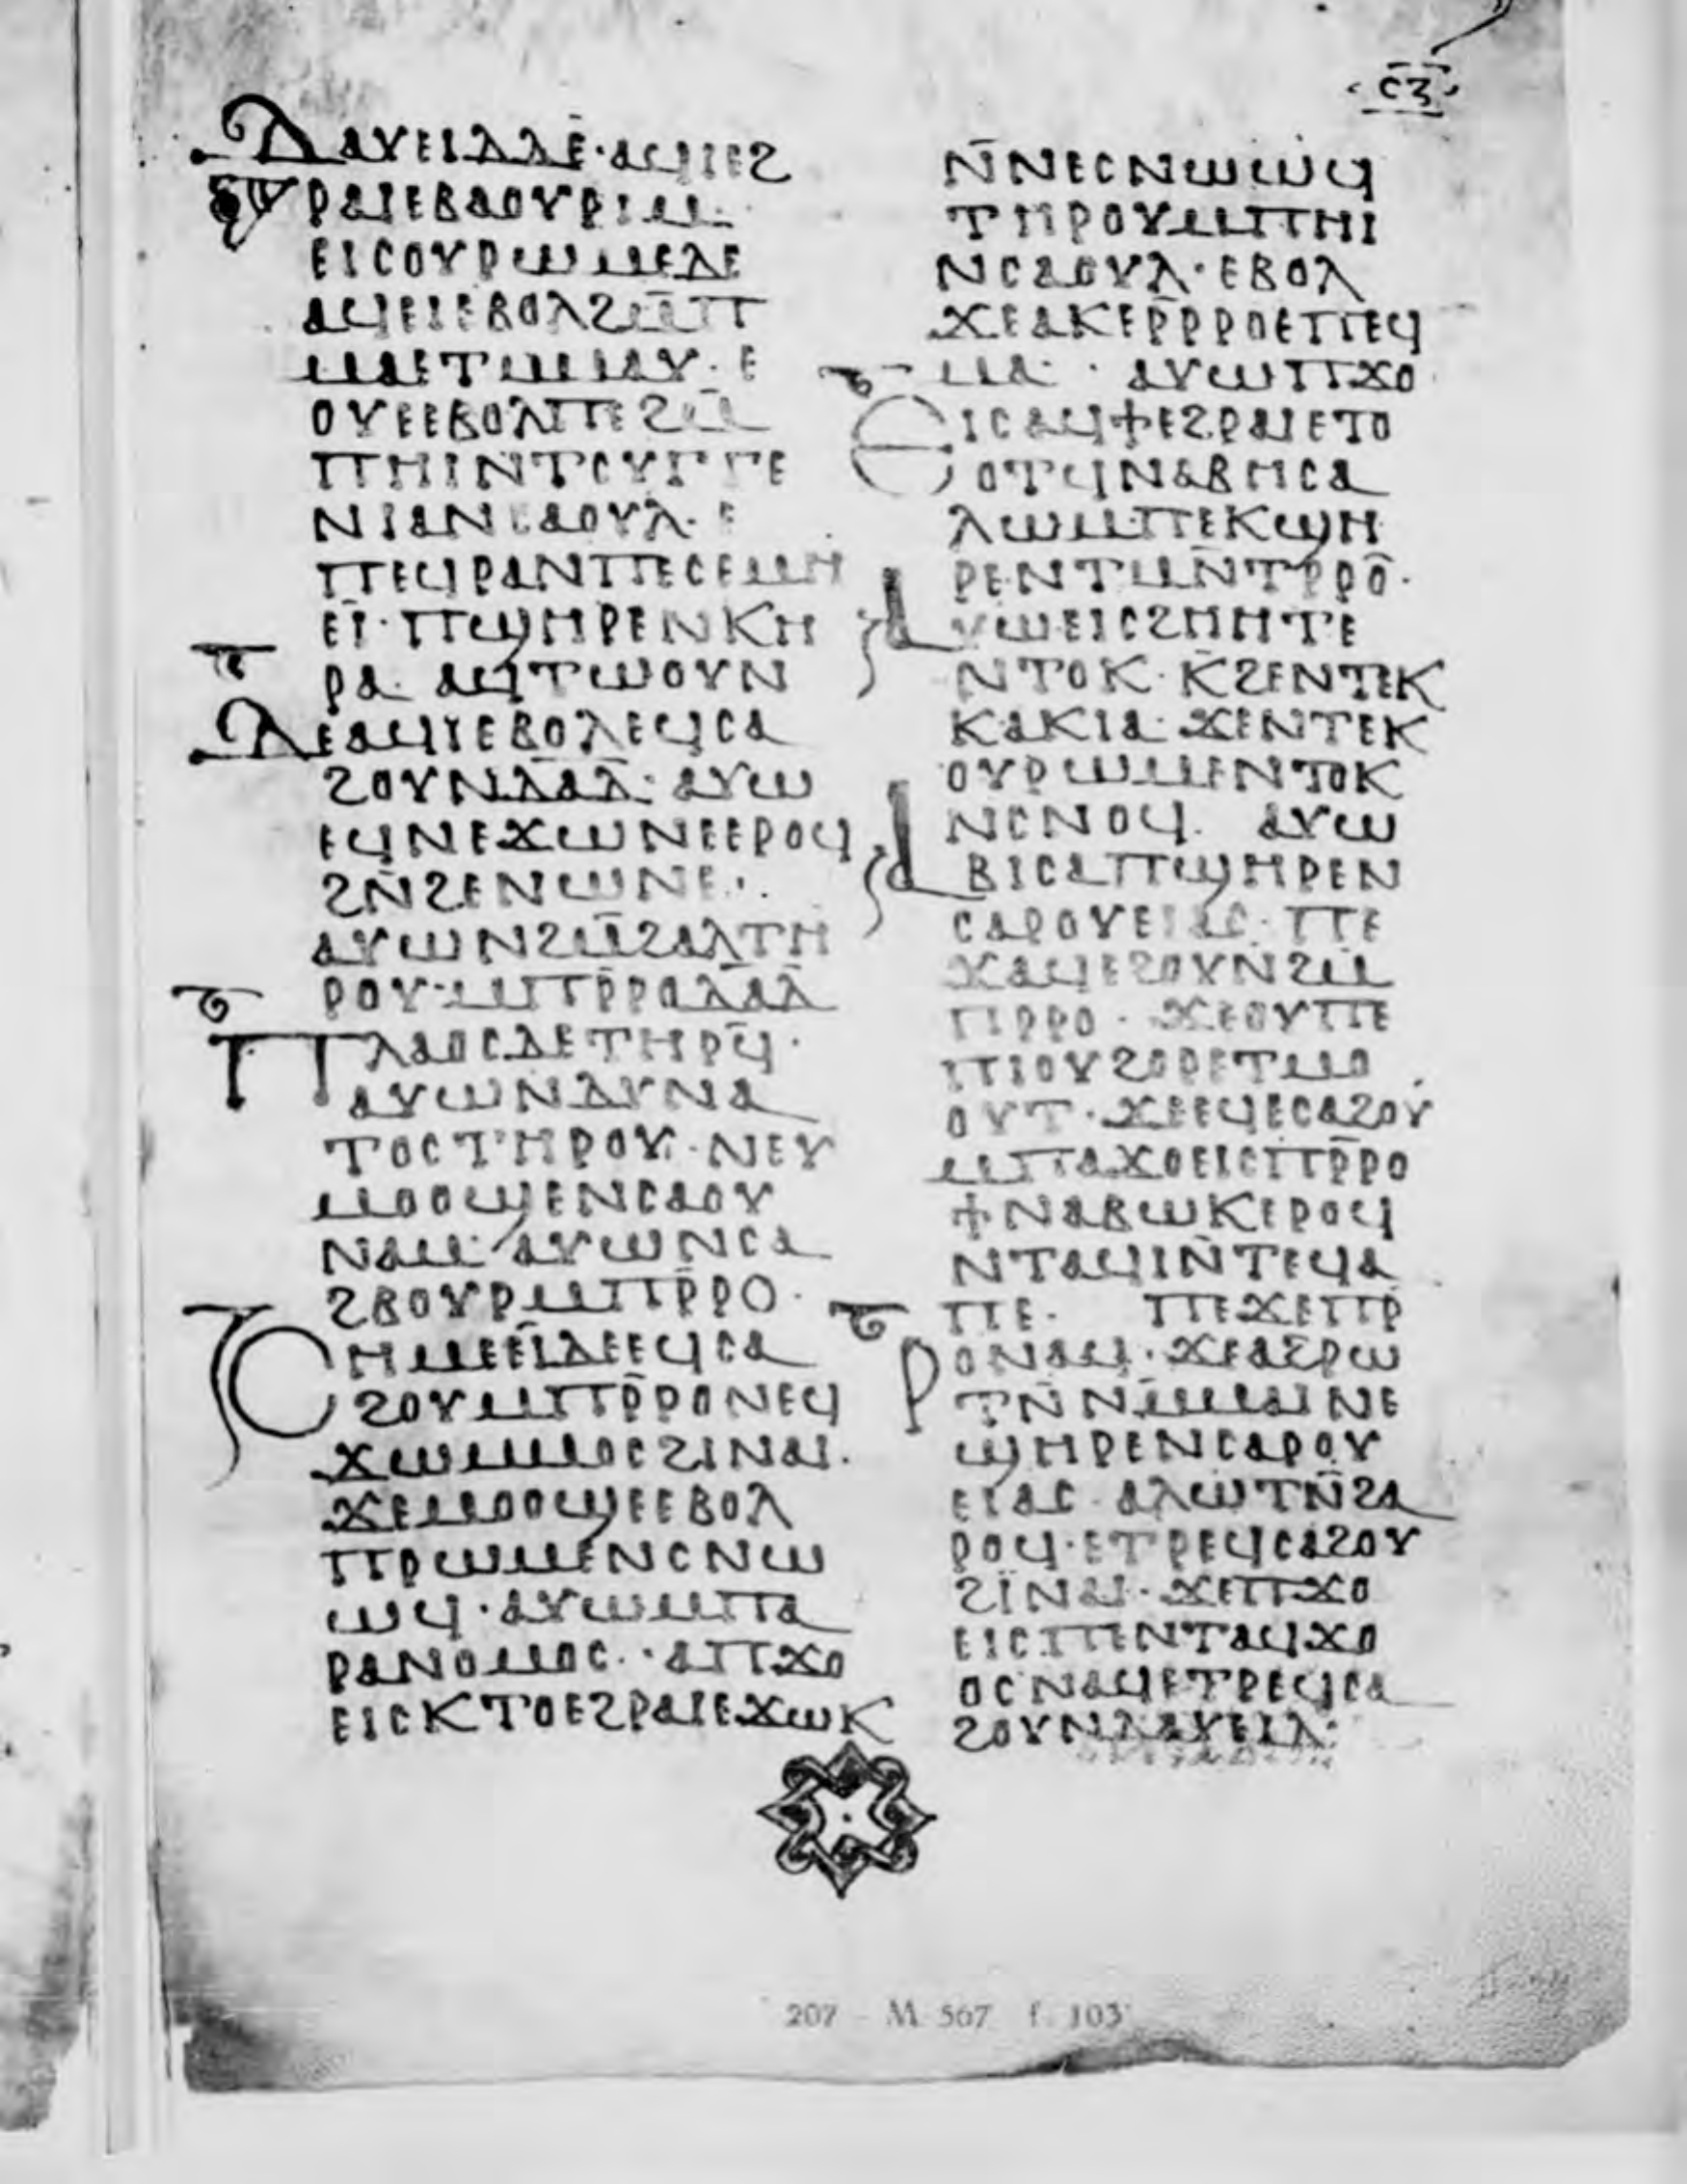 ⲥⲍ
ⲇⲁⲩⲉⲓⲇⲇⲉ̄·ⲁϥⲓⲉϩ
ⲣⲁⲓⲉⲃⲁⲟⲩⲣⲓⲙ·
ⲉⲓⲥⲟⲩⲣⲱⲙⲉⲇⲉ
ⲁϥⲉⲓⲉⲃⲟⲗϩⲙ̄ⲡ
ⲙⲁⲉⲧⲙⲙⲁⲩ·ⲉ
ⲟⲩⲉⲉⲃⲟⲗⲡⲉϩⲙ̄
ⲡⲏⲓⲛⲧⲥⲩⲅⲅⲉ
ⲛⲓⲁⲛⲥⲁⲟⲩⲗ·ⲉ
ⲡⲉϥⲣⲁⲛⲡⲉⲥⲉⲙⲏ
ⲉⲓ̈·ⲡϣⲏⲣⲉⲛⲕⲏ
ⲣⲁ· ⲁϥⲧⲱⲟⲩⲛ
ⲇⲉⲁϥⲓⲉⲃⲟⲗⲉϥⲥⲁ
ϩⲟⲩⲛⲇ̄ⲁ̄ⲇ̄·ⲁⲩⲱ
ⲉϥⲛⲉϫⲱⲛⲉⲉⲣⲟϥ
ϩⲛ̄ϩⲉⲛⲱⲛⲉ·
ⲁⲩⲱⲛϩⲙ̄ϩⲁⲗⲧⲏ
ⲣⲟⲩ·ⲙⲡⲣ̄ⲣⲟⲇ̄ⲁ̄ⲇ̄
ⲡⲗⲁⲟⲥⲇⲉⲧⲏⲣϥ̄·
ⲁⲩⲱⲛⲇⲩⲛⲁ
ⲧⲟⲥⲧⲏⲣⲟⲩ·ⲛⲉⲩ
ⲙⲟⲟϣⲉⲛⲥⲁⲟⲩ
ⲛⲁⲙ·ⲁⲩⲱⲛⲥⲁ
ϩⲃⲟⲩⲣⲙⲡⲣ̄ⲣⲟ·
ⲥⲏⲙⲉⲉ̄ⲓⲇⲉⲉϥⲥⲁ
ϩⲟⲩⲙⲡⲣ̄ⲣⲟⲛⲉϥ
ϫⲱⲙⲙⲟⲥϩⲓⲛⲁⲓ·
ϫⲉⲙⲟⲟϣⲉⲉⲃⲟⲗ
ⲡⲣⲱⲙⲉⲛⲥⲛⲱ
ⲱϥ·ⲁⲩⲱⲙⲡⲁ
ⲣⲁⲛⲟⲙⲟⲥ·ⲁⲡϫⲟ
ⲉⲓⲥⲕⲧⲟⲉϩⲣⲁⲓⲉϫⲱⲕ
ⲛ̄ⲛⲉⲥⲛⲱⲱϥ
ⲧⲏⲣⲟⲩⲙⲡⲏⲓ
ⲛⲥⲁⲟⲩⲗ·ⲉⲃⲟⲗ
ϫⲉⲁⲕⲉⲣ̄ⲣⲣⲟⲉⲡⲉϥ
ⲙⲁ· ⲁⲩⲱⲡϫⲟ
ⲉⲓⲥⲁϥϯⲉϩⲣⲁⲓⲉⲧⲟ
ⲟⲧϥⲛⲁⲃⲏⲥⲁ
ⲗⲱⲙⲡⲉⲕϣⲏ
ⲣⲉⲛⲧⲙⲛ̄ⲧⲣⲣⲟ̄·
ⲁⲩⲱⲉⲓⲥϩⲏⲏⲧⲉ
ⲛⲧⲟⲕ·ⲕ̄ϩⲉⲛⲧⲉⲕ
ⲕⲁⲕⲓⲁ·ϫⲉⲛⲧⲉⲕ
ⲟⲩⲣⲱⲙⲉⲛⲧⲟⲕ
ⲛⲥⲛⲟϥ· ⲁⲩⲱ
ⲁⲃⲓⲥⲁⲡϣⲏⲣⲉⲛ
ⲥⲁⲣⲟⲩⲉⲓⲁⲥ·ⲡⲉ
ϫⲁϥⲉϩⲟⲩⲛϩⲙ
ⲡⲣⲣⲟ·ϫⲉⲟⲩⲡⲉ
ⲡⲓⲟⲩϩⲟⲣⲉⲧⲙⲟ
ⲟⲩⲧ·ϫⲉⲉϥⲉⲥⲁϩⲟⲩ
ⲙⲡⲁϫⲟⲉⲓⲥⲡⲣ̄ⲣⲟ
ϯⲛⲁⲃⲱⲕⲉⲣⲟϥ
ⲛⲧⲁϥⲓⲛ̄ⲧⲉϥⲁ
ⲡⲉ· ⲡⲉϫⲉⲡⲣ
ⲣⲟⲛⲁϥ·ϫⲉⲁϩ̄ⲣⲱ
ⲧⲛ̄ⲛⲙⲙⲁⲓⲛⲉ
ϣⲏⲣⲉⲛⲥⲁⲣⲟⲩ
ⲉⲓⲁⲥ·ⲁⲗⲱⲧⲛ̄ϩⲁ
ⲣⲟϥ·ⲉⲧⲣⲉϥⲥⲁϩⲟⲩ
ϩⲓ̈ⲛⲁⲓ·ϫⲉⲡϫⲟ
ⲉⲓⲥⲡⲉⲛⲧⲁϥϫⲟ
ⲟⲥⲛⲁϥⲉⲧⲣⲉϥⲥⲁ
ϩⲟⲩⲛⲇⲁⲩⲉⲓⲇ·
207 - M 567 f. 103